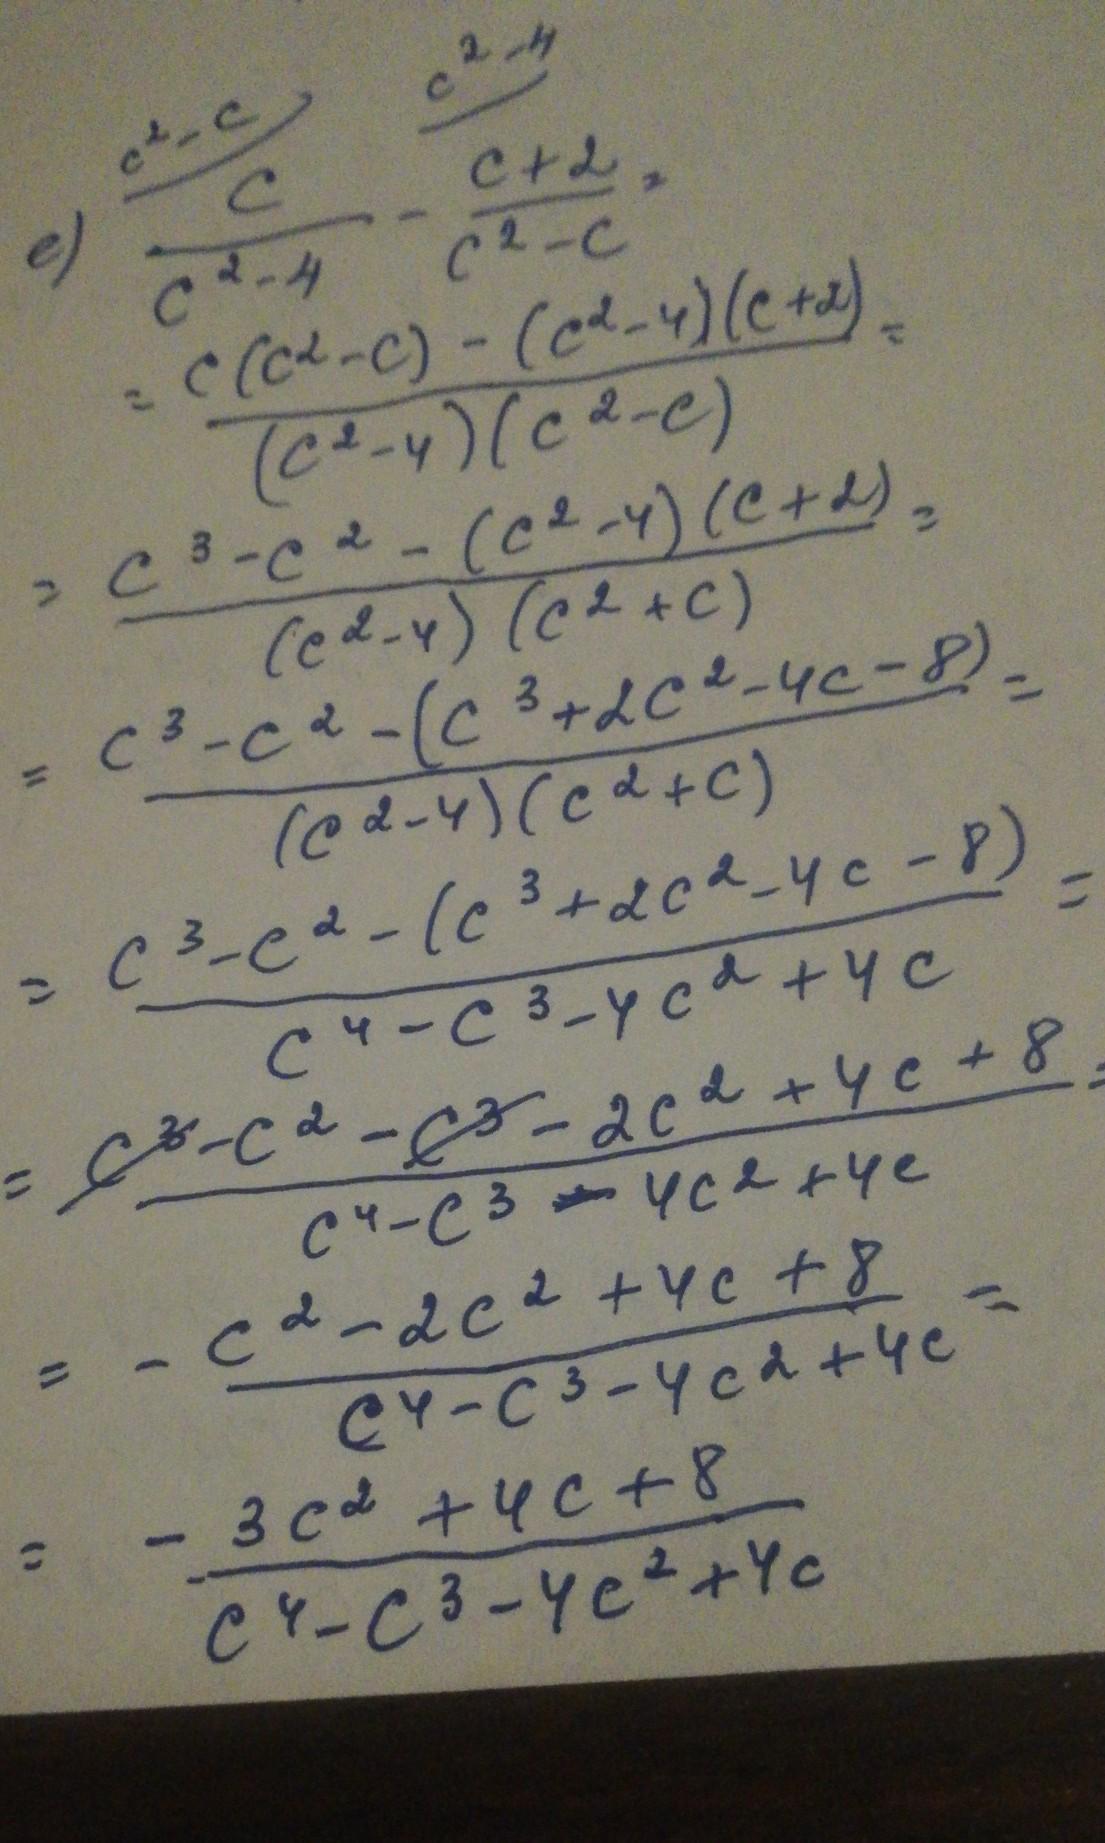 c² - c c² - 4
e) c/(c² - 4) - (c + 2)/(c² - c) =
= (c(c² - c) - (c² - 4)(c + 2))/((c² - 4)(c² - c)) =
= (c³ - c² - (c² - 4)(c + 2))/((c² - 4)(c² + c)) =
= (c³ - c² - (c³ + 2c² - 4c - 8))/((c² - 4)(c² + c)) =
= (c³ - c² - (c³ + 2c² - 4c - 8))/(c⁴ - c³ - 4c² + 4c) =
= (c³ - c² - c³ - 2c² + 4c + 8)/(c⁴ - c³ - 4c² + 4c) =
= - (c² - 2c² + 4c + 8)/(c⁴ - c³ - 4c² + 4c) =
= - (3c² + 4c + 8)/(c⁴ - c³ - 4c² + 4c)